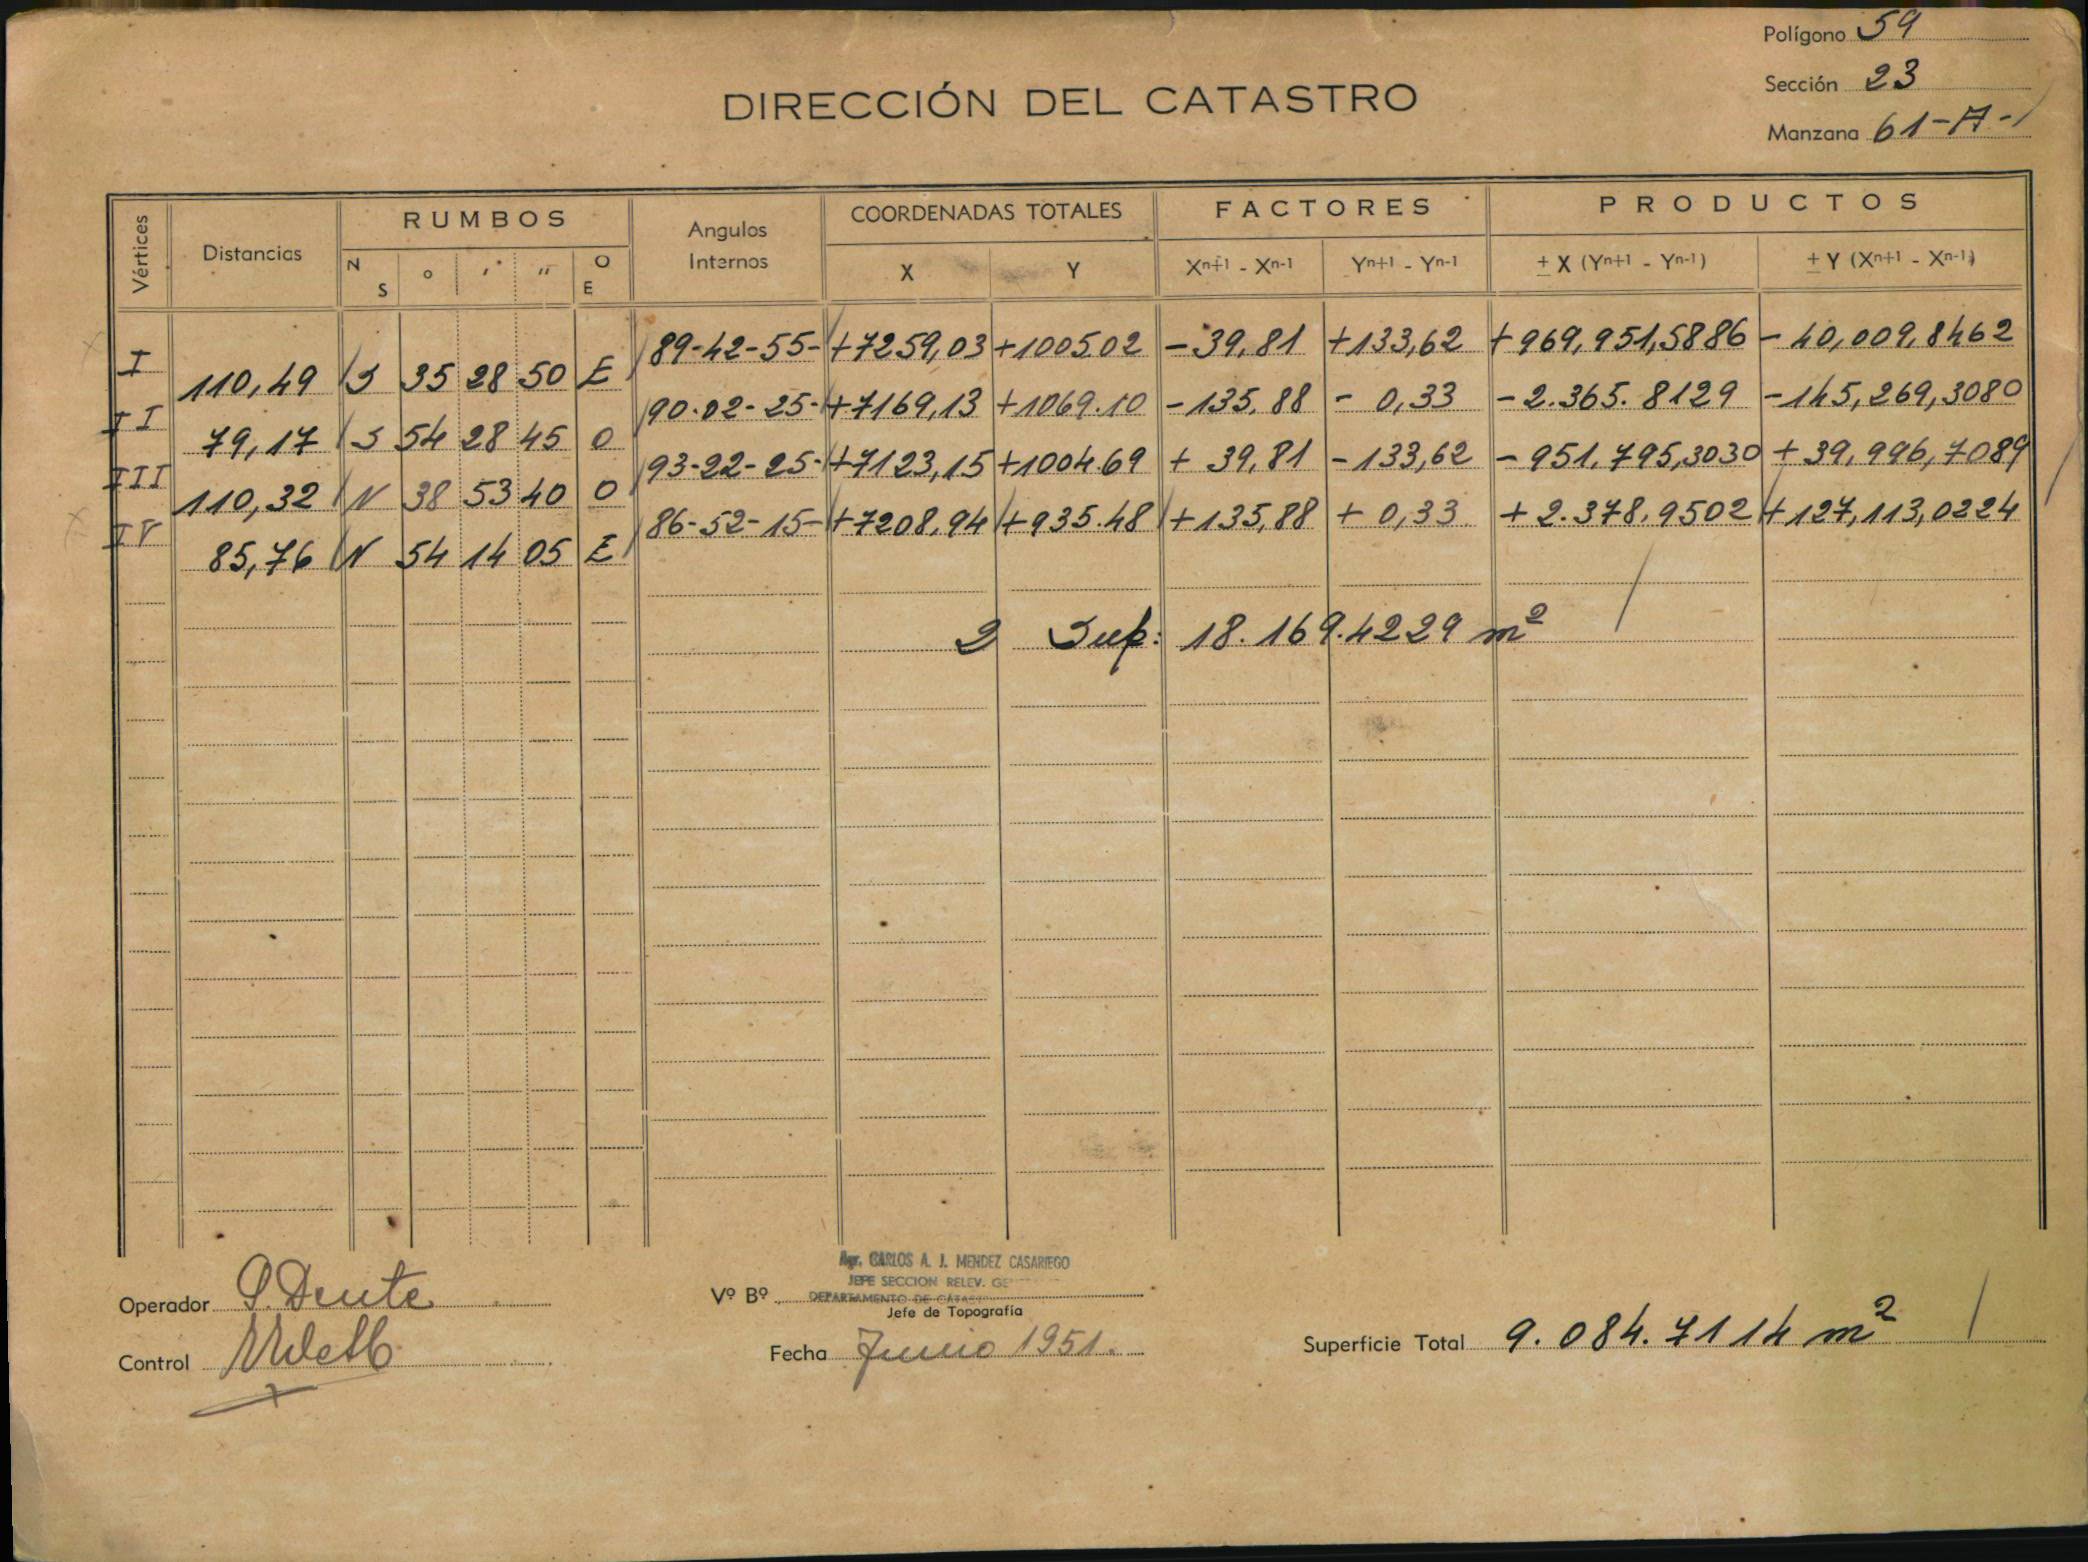 Polígono 59
Sección 23
Manzana 61-A-
DIRECCIÓN DEL CATASTRO
Vértices Distancias RUMBOS Angulos Internos COORDENADAS TOTALES FACTORES PRODUCTOS
N S ° ' " O E X Y Xn+1 - Xn-1 Yn+1 - Yn-1 ± X (Yn+1 - Yn-1) ± Y (Xn+1 - Xn-1)
I 89-42-55- +7259,03 +1005.02 -39,81 +133,62 +969,951,5886 -40,009,8462
110,49 S 35 28 50 E
II 90-02-25- +7169,13 +1069.10 -135,88 - 0,33 -2.365.8129 -145,269,3080
79,17 S 54 28 45 O
III 93-22-25- +7123,15 +1004.69 + 39,81 -133,62 -951.795,3030 +39,996,7089
110,32 N 38 53 40 O
IV 86-52-15- +7208,94 +935.48 +135,88 + 0,33 +2.378,9502 +127,113,0224
85,76 N 54 14 05 E
2 Sup: 18.169.4229 m²
Agr. CARLOS A. J. MENDEZ CASARIEGO
JEFE SECCION RELEV. GE
Operador S. Dente
Vº Bº DEPARTAMENTO DE CATAS
Jefe de Topografía
Control
Fecha Junio 1951.
Superficie Total 9.084.7114 m²